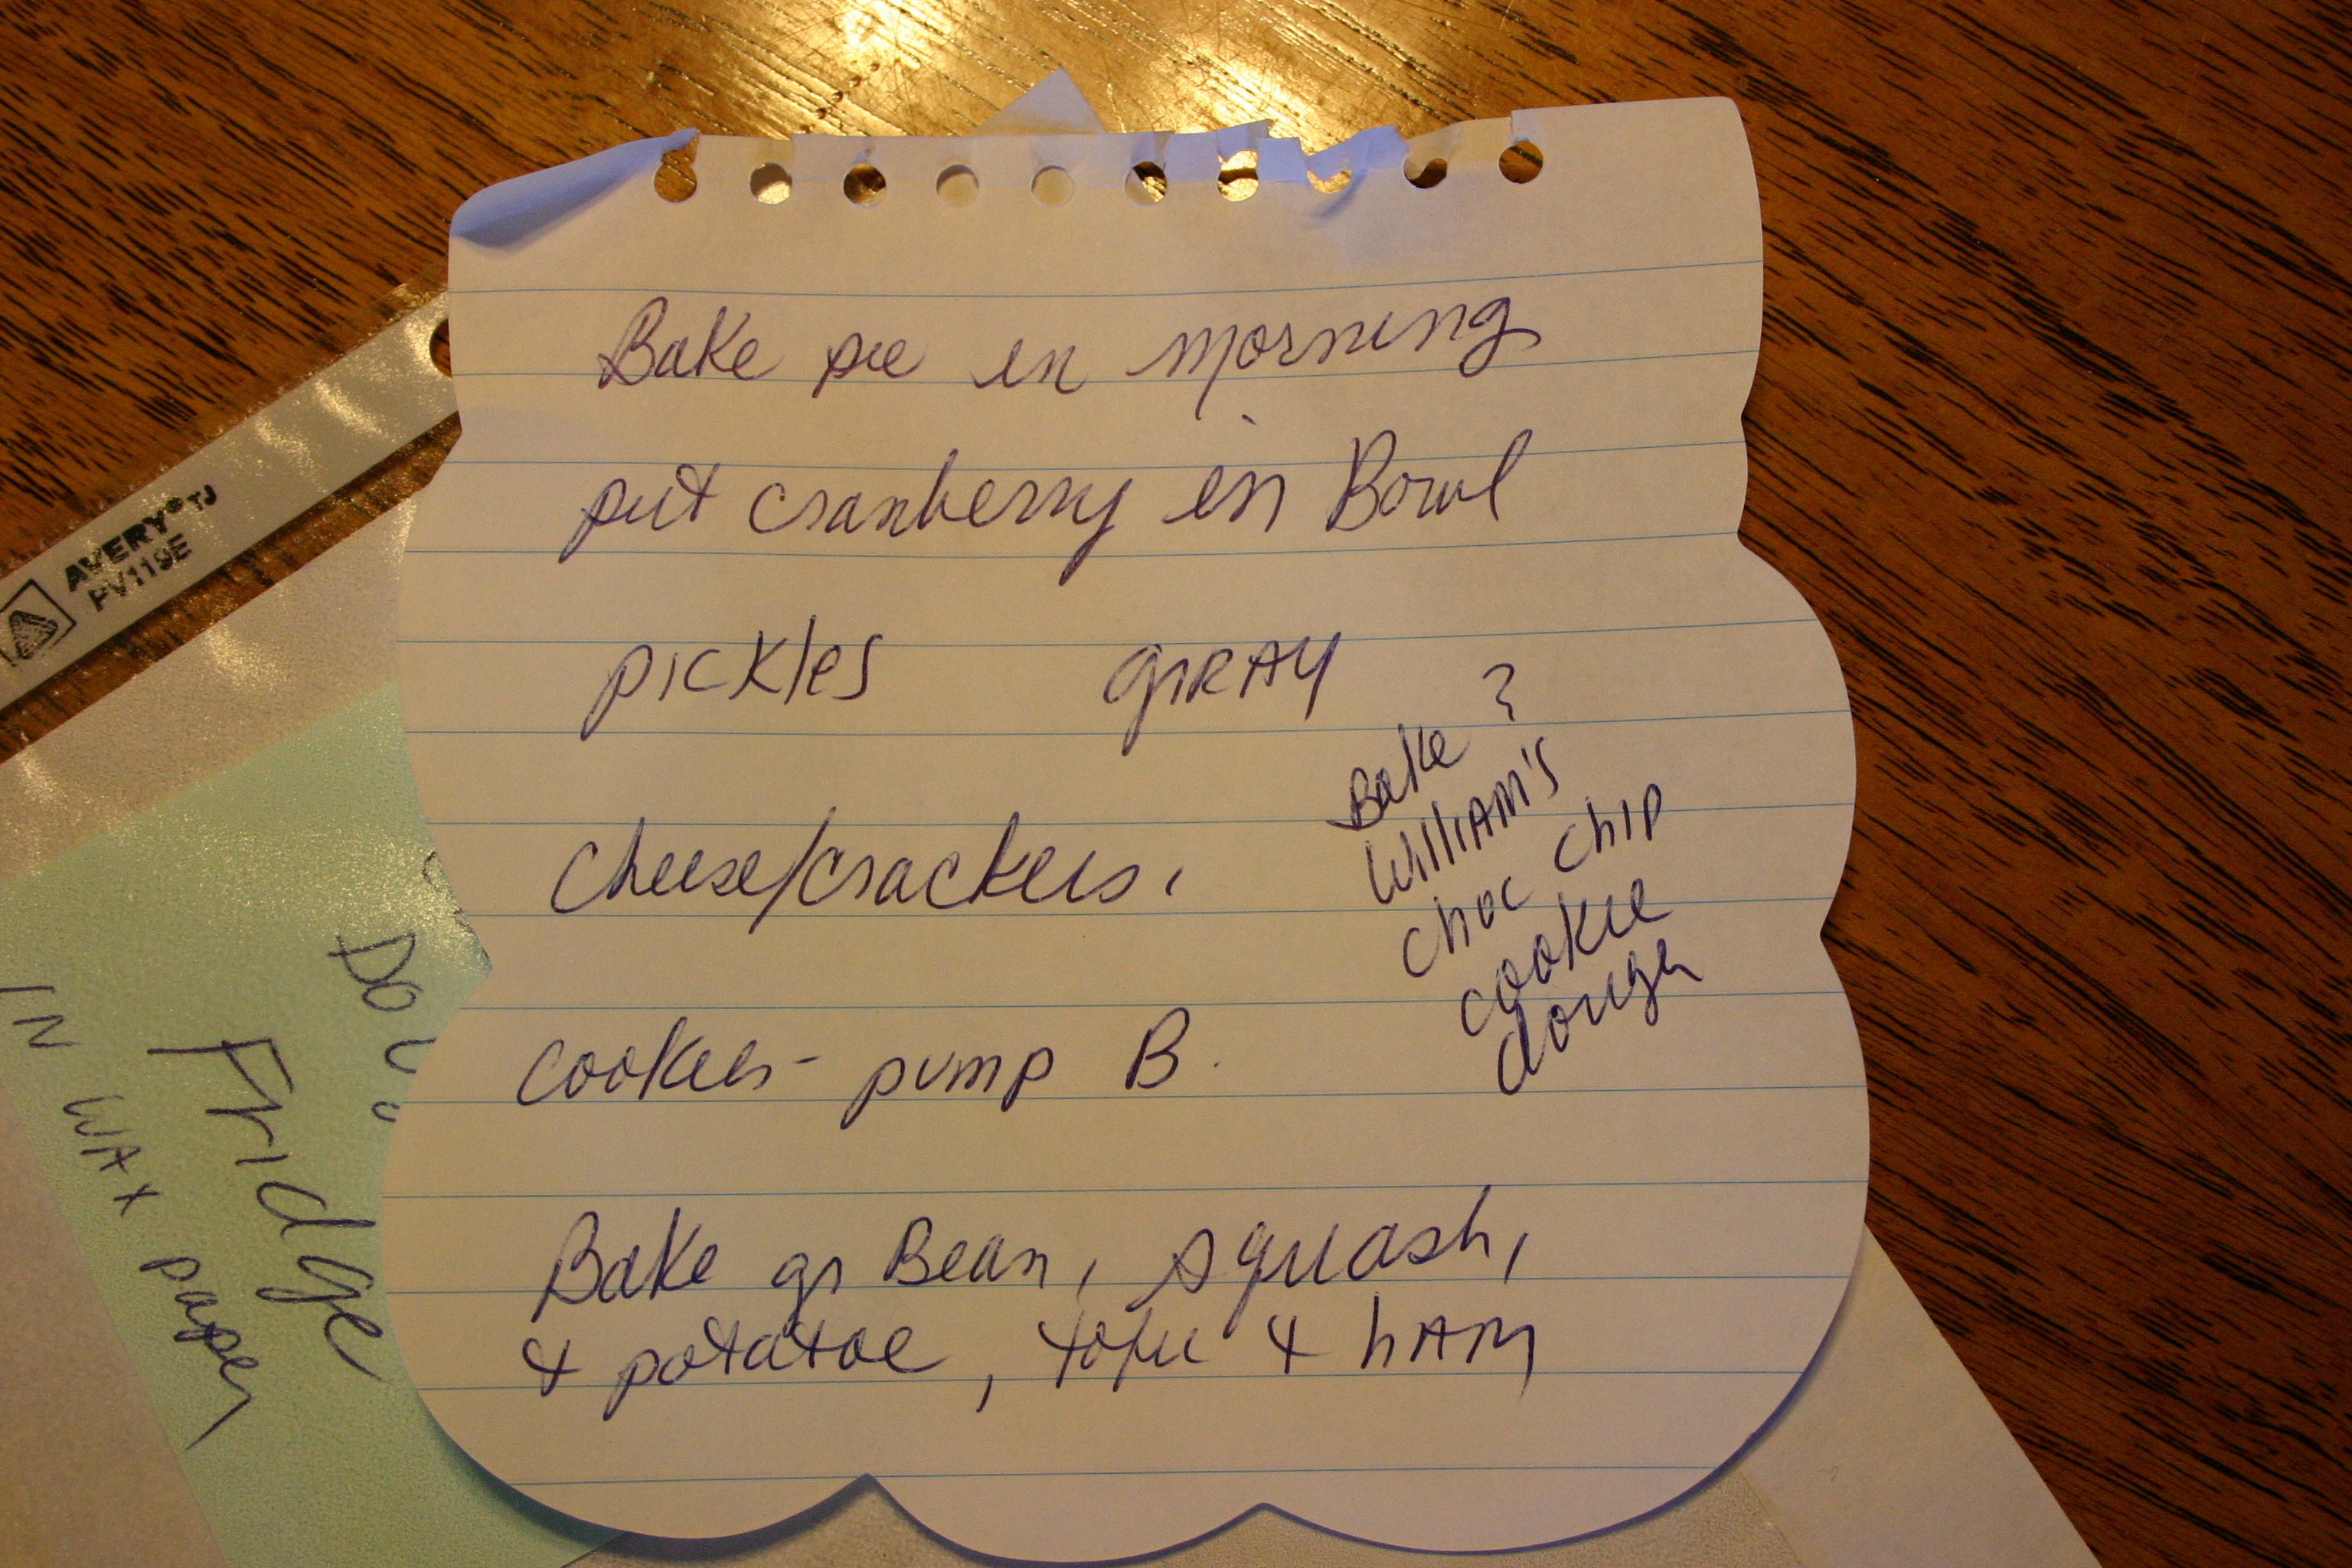 Bake pie in morning
put cranberry in Bowl
pickles grRAY
Bake ?
William's
choc chip
cookie
dough
cheese/crackers,
cookies - pump B.
Bake gr Bean, squash,
& potatoe, tofu & hAM
AVERY® TJ
PV119E
DO
Fridge
IN WAX paper